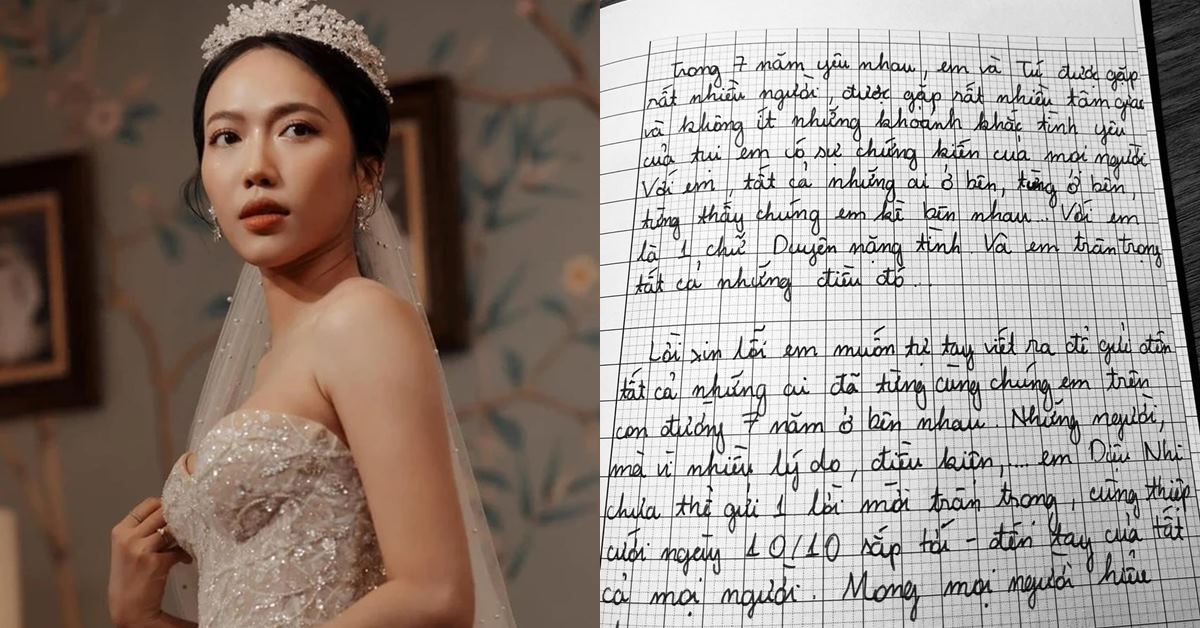 Trong 7 năm yêu nhau, em và Tú được gặp
rất nhiều người, được gặp rất nhiều tâm giao
và không ít những khoảnh khắc tình yêu
của tụi em có sự chứng kiến của mọi người
Với em, tất cả những ai ở bên, từng ở bên,
từng thấy chúng em kề bên nhau... Với em
là 1 chữ Duyên nặng tình. Và em trân trọng
tất cả những điều đó...
Lời xin lỗi em muốn tự tay viết ra để gửi đến
tất cả những ai đã từng cùng chúng em trên
con đường 7 năm ở bên nhau. Những người,
mà vì nhiều lý do, điều kiện,... em Diệu Nhi
chưa thể gửi 1 lời mời trân trọng, cùng thiệp
cưới ngày 10/10 sắp tới - đến tay của tất
cả mọi người. Mong mọi người hiểu